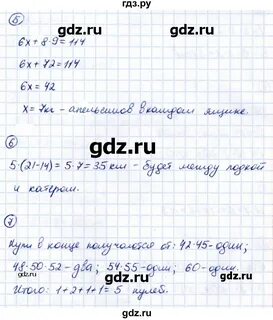 gdz.ru
⑤
6x+8·9=114
6x+72=114
gdz.ru
6x=42
x=7кг - апельсинов в каждом ящике.
gdz.ru
⑥
5·(21-14)=5·7=35км - будет между лодкой
и катером.
gdz.ru
⑦
Нули в конце получаются от: 42·45-один;
48·50·52-два; 54·55-один; 60-один.
gdz.ru
Итого: 1+2+1+1=5 нулей.